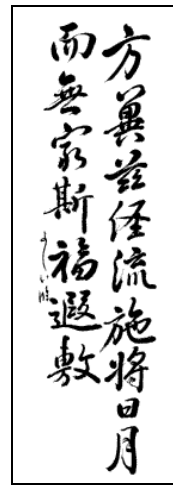 方冀茲經流施將日月
而無窮斯福遐敷